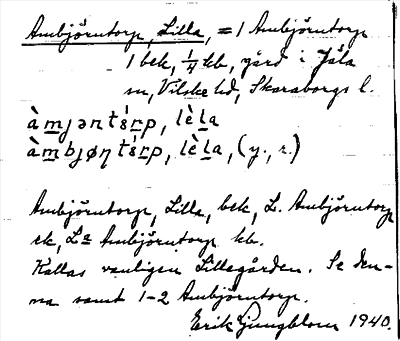 Ambjörntorp, Lilla, = 1 Ambjörntorp
1 bek, 1/4 kb, gård i Jäla
sn, Vilske hd, Skaraborgs l.
àmjənts̀rp, lèla
àmbjøηts̀rp, lèla, (y., r.)
Ambjörntorp, Lilla, bek, L. Ambjörntorp
ek, La Ambjörntorp kb.
Kallas vanligen Lillegården. Se den-
na samt 1-2 Ambjörntorp.
Erik Ljungblom 1940.